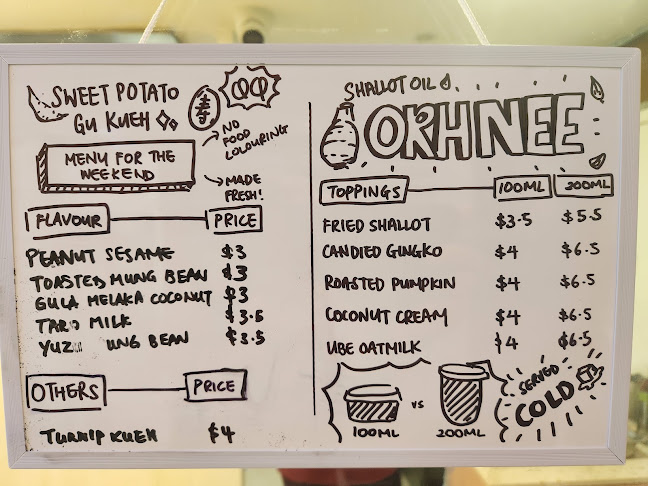 SWEET POTATO
GU KUEH
QQ
寿
NO
FOOD
COLOURING
MADE
FRESH!
MENU FOR THE
WEEKEND
FLAVOUR PRICE
PEANUT SESAME $3
TOASTED MUNG BEAN $3
GULA MELAKA COCONUT $3
TARO MILK $3.5
YUZ UNG BEAN $3.5
OTHERS PRICE
TURNIP KUEH $4
SHALLOT OIL
ORHNEE
TOPPINGS 100ML 200ML
FRIED SHALLOT $3.5 $5.5
CANDIED GINGKO $4 $6.5
ROASTED PUMPKIN $4 $6.5
COCONUT CREAM $4 $6.5
UBE OATMILK $4 $6.5
100ML VS 200ML
SERVED
COLD